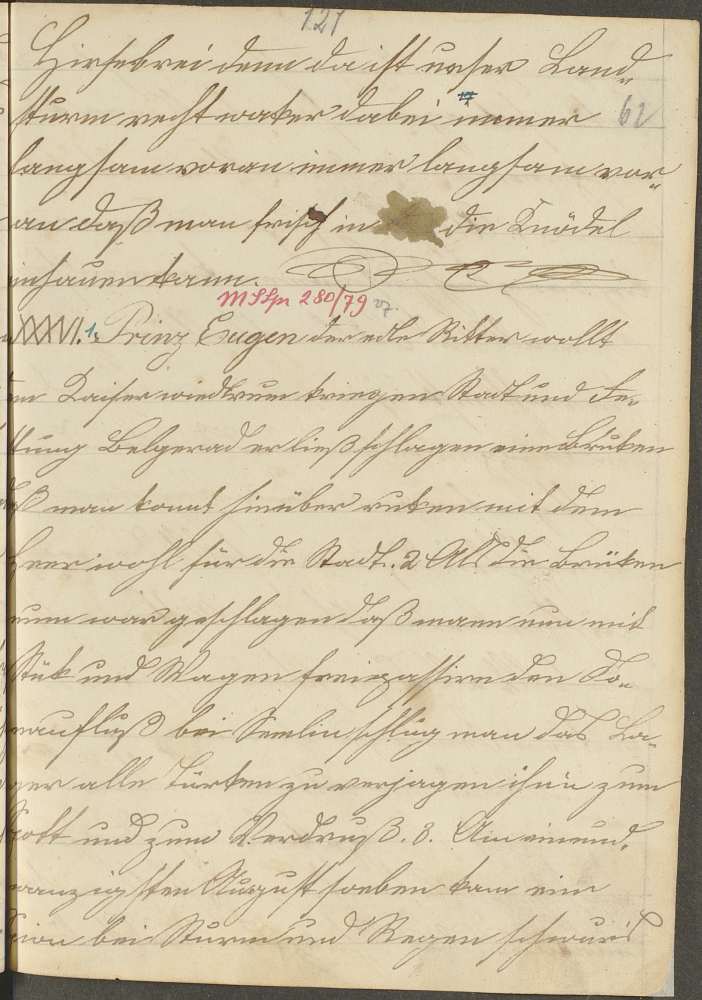 127
Hirsebrei denn da ist unser Land„
sturm recht waker dabei immer
62
langsam voran immer langsam vor„
an daß man frisch in die Knödel
inhauen kann.
MSSpr 280/79
XXXVI. 1. Prinz Eugen der edle Ritter wollt
em Kaiser wiedrum kriegen Stadt und Fe„
stung Belgerad er ließ schlagen eine Brüken
daß man konnt hinüber ruken mit dem
Heer wohl für die Stadt. 2 Als die Brüken
nun war geschlagen daß mann nun mit
Stük und Wagen frei passirn den Do„
naufluß bei Semlin schlug man das La„
ger alle Türken zu verjagen ihn'n zum
Spott und zum Verdruß. 3. Am einund„
wanzigsten August soeben kam ein
Spion bei Sturm und Regen schwur's